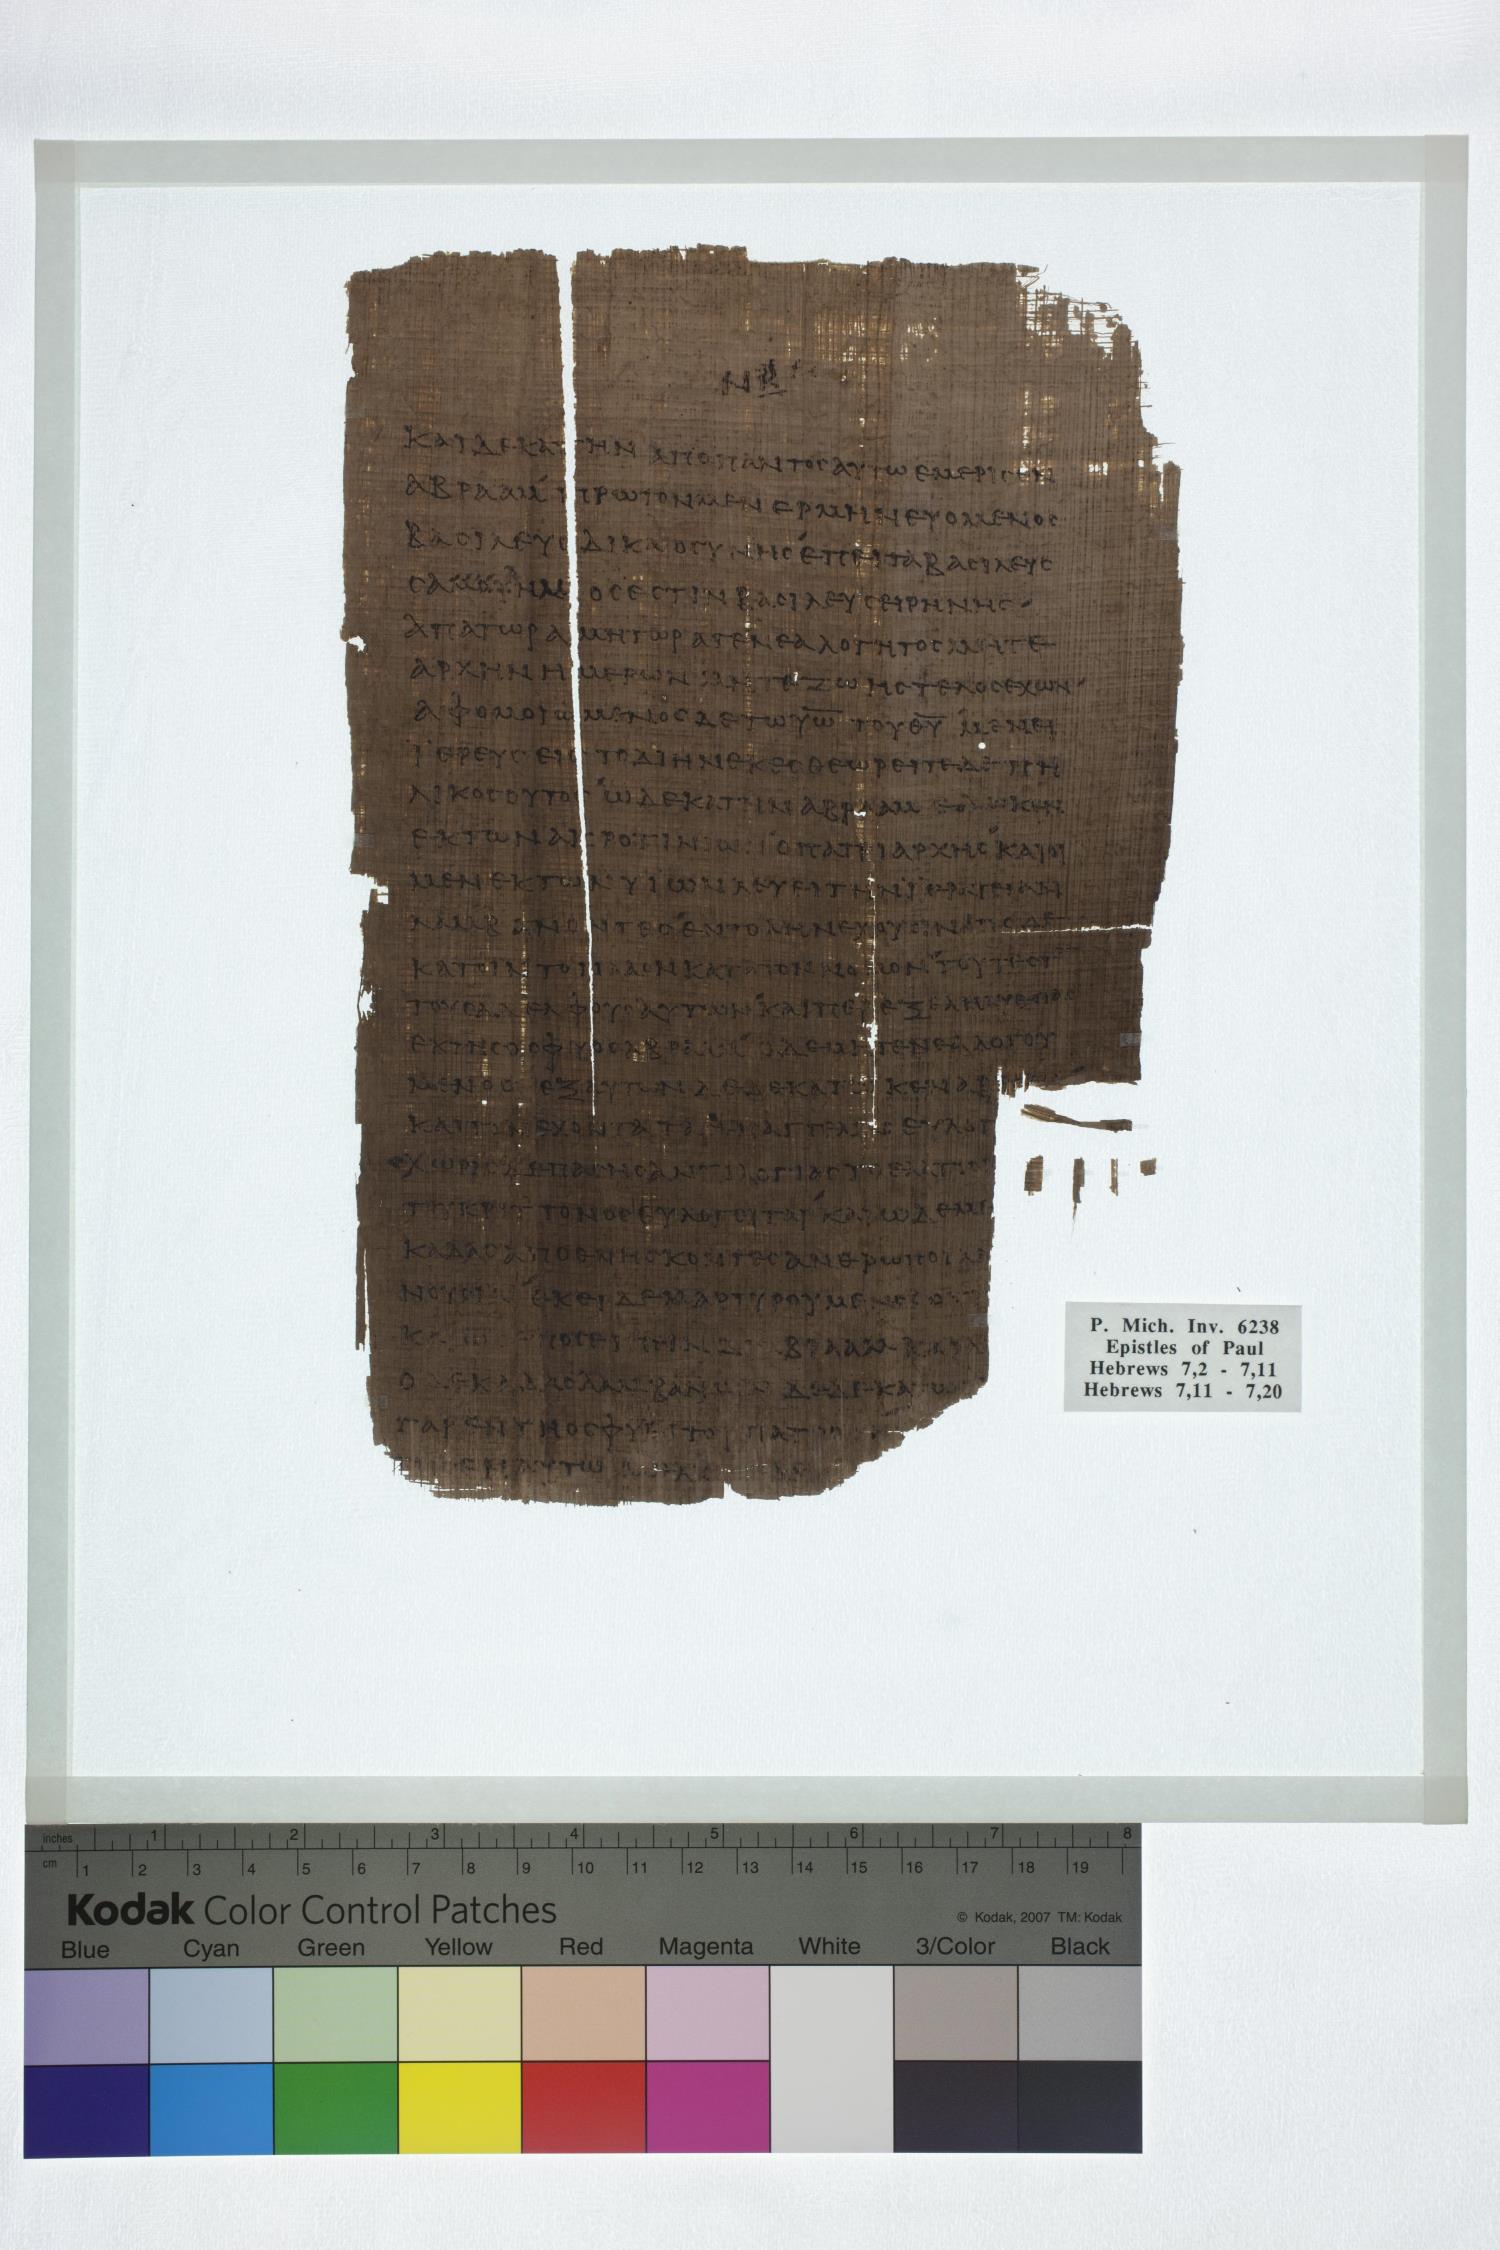 ΝΒ
ΚΑΙ ΔΕΚΑΤΗΝ ΑΠΟ ΠΑΝΤΟΣ ΑΥΤΩ ΕΜΕΡΙΣΕΝ
ΑΒΡΑΑΜ ΠΡΩΤΟΝ ΜΕΝ ΕΡΜΗΝΕΥΟΜΕΝΟΣ
ΒΑΣΙΛΕΥΣ ΔΙΚΑΙΟΣΥΝΗΣ ΕΠΕΙΤΑ ΒΑΣΙΛΕΥΣ
ΟΣ ΕΣΤΙΝ ΒΑΣΙΛΕΥΣ ΕΙΡΗΝΗΣ
ΑΠΑΤΩΡ ΑΜΗΤΩΡ ΑΓΕΝΕΑΛΟΓΗΤΟΣ ΜΗΤΕ
ΑΡΧΗΝ ΗΜΕΡΩΝ ΜΗΤΕ ΖΩΗΣ ΤΕΛΟΣ ΕΧΩΝ
ΑΦΟΜΟΙΩΜΕΝΟΣ ΔΕ ΤΩ ΥΩ ΤΟΥ ΘΥ ΜΕΝΕΙ
ΙΕΡΕΥΣ ΕΙΣ ΤΟ ΔΙΗΝΕΚΕΣ ΘΕΩΡΕΙΤΕ ΔΕ ΠΗ
ΛΙΚΟΣ ΟΥΤΟΣ Ω ΔΕΚΑΤΗΝ ΑΒΡΑΑΜ ΕΔΩΚΕΝ
ΕΚ ΤΩΝ ΑΚΡΟΘΙΝΙΩΝ Ο ΠΑΤΡΙΑΡΧΗΣ ΚΑΙ ΟΙ
ΜΕΝ ΕΚ ΤΩΝ ΥΙΩΝ ΛΕΥΕΙ ΤΗΝ ΙΕΡΑΤΕΙΑΝ
ΛΑΜΒΑΝΟΝΤΕΣ ΕΝΤΟΛΗΝ ΕΧΟΥΣΙΝ
ΤΟΝ ΛΑΟΝ ΚΑΤΑ ΤΟΝ ΝΟΜΟΝ ΤΟΥΤΕΣΤ
ΤΟΥΣ ΑΔΕΛΦΟΥΣ ΑΥΤΩΝ ΚΑΙΠΕΡ ΕΞΕΛΗΛΥΘΟΤΑΣ
ΕΚ ΤΗΣ ΟΣΦΥΟΣ ΑΒΡΑΑΜ Ο ΔΕ ΜΗ ΓΕΝΕΑΛΟΓΟΥ
ΜΕΝΟΣ ΕΞ ΑΥΤΩΝ ΔΕΔΕΚΑΤΩΚΕΝ ΑΒΡ
ΚΑΙ ΤΟΝ ΕΧΟΝΤΑ ΤΑΣ ΕΠΑΓΓΕΛΙΑΣ ΕΥΛΟΓ
ΧΩΡΙΣ ΔΕ ΠΑΣΗΣ ΑΝΤΙΛΟΓΙΑΣ ΤΟ ΕΛΑΤΤΟΝ
ΚΡΙΤΤΟΝΟΣ ΕΥΛΟΓΕΙΤΑΙ ΚΑΙ ΩΔΕ ΜΕ
ΚΑΔΑΣ ΑΠΟΘΝΗΣΚΟΝΤΕΣ ΑΝΘΡΩΠΟΙ ΛΑ
ΕΚΕΙ ΔΕ ΜΑΡΤΥΡΟΥΜΕΝΟΣ Ο
ΕΙΠΕΙΝ ΔΙ ΑΒΡΑΑΜ ΚΑΙ
Ο ΔΕΚΑΔΑΣ ΛΑΜΒΑΝΩΝ ΔΕΔΕΚΑΤΩ
ΓΑΡ ΕΝ ΤΗ ΟΣΦΥΕΙ ΤΟΥ ΠΑΤΡΟΣ
ΑΥΤΩ
P. Mich. Inv. 6238
Epistles of Paul
Hebrews 7,2 - 7,11
Hebrews 7,11 - 7,20
inches 1 2 3 4 5 6 7 8
cm 1 2 3 4 5 6 7 8 9 10 11 12 13 14 15 16 17 18 19
Kodak Color Control Patches
© Kodak, 2007 TM: Kodak
Blue Cyan Green Yellow Red Magenta White 3/Color Black